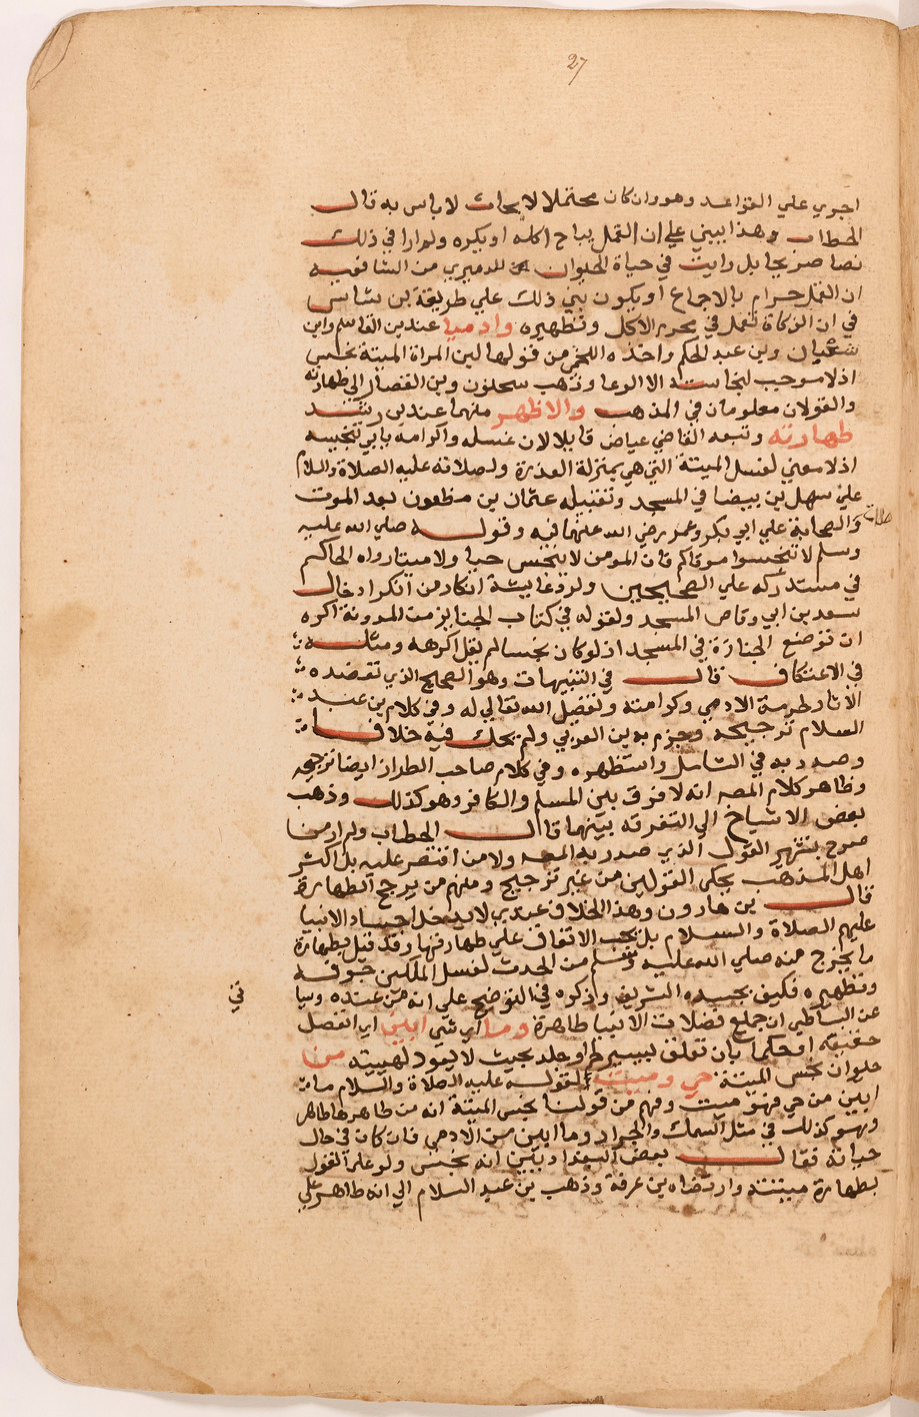 27
اجري علي القواعد وهو وان كان محتملا لابحاث لا باس به قال
الحطاب وهذا يبني علي ان القمل يباح اكله او يكره ولم ار في ذلك
نصا صريحا بل رايت في حياة الحيوان للدميري من الشافعية
ان القمل حرام بالاجماع او يكون بني ذلك علي طريقة بن شاس
في ان الزكاة تعمل في محرم الاكل وتطهيره وادميا عند بن القاسم وابن
شعبان وبن عبد الحكم واخذه اللخمي من قولها لبن المراة الميتة نجس
اذ لا موجب لنجاسته الا الوعا وذهب سحنون وبن القصار الي طهارته
والقولان معلومان في المذهب والاظهر منهما عند بن رشد
طهارته وتبعه القاضي عياض قايلا لان غسله واكرامه يابي تنجيسه
اذ لا معني لغسل الميتة التي هي بمنزلة العذرة ولصلاته عليه الصلاة والسلام
علي سهل بن بيضا في المسجد وتقبيله عثمان بن مظعون بعد الموت
صلاة
والصحابة علي ابو بكر وعمر رضي الله عنهما فيه وقوله صلي الله عليه
وسلم لا تنجسوا موتاكم فان المومن لا ينجس حيا ولا ميتا رواه الحاكم
في مستدركه علي الصحيحين ولرد عايشة انكار من انكر ادخال
سعد بن ابي وقاص المسجد ولقوله في كتاب الجنايز من المدونة اكره
ان توضع الجنازة في المسجد اذ لو كان نجسا لم يقل اكرهه ومثله
في الاعتكاف قال في التنبيهات وهو الصحيح الذي تعضده
الاثار لحرمة الادمي وكرامته وتفضيل الله تعالي له وفي كلام بن عبد
السلام ترجيحه وجزم به بن العربي ولم يحك فيه خلافا
وصدر به في الشامل واستظهره وفي كلام صاحب الطراز ايضا ترجيحه
وظاهر كلام المصه انه لا فرق بين المسلم والكافر وهو كذلك وذهب
بعض الاشياخ الي التفرقة بينهما قال الحطاب ولم ار من
صرح بتشهير القول الذي صدر به المصه ولا من اقتصر عليه بل اكثر
اهل المذهب يحكي القولين من غير ترجيح ومنهم من يرجح الطهارة
قال بن هارون وهذا الخلاف عندي لا يدخل اجساد الانبيا
عليهم الصلاة والسلام بل يجب الاتفاق علي طهارتها وقد قيل بطهارة
ما يخرج منه صلي الله عليه وسلم من الحدث لغسل الملكين جوفه
وتطهيره فكيف بجسده الشريف وذكره في التوضيح علي انه من عنده وسيا
في
عن البساطي ان جميع فضلات الانبيا طاهرة وما اي شي ابين اي انفصل
حقيقة او حكما بان تعلق ليسير لحم او جلد بحيث لا يعود لهيئته من
حيوان نجس الميتة حي وميت لقوله عليه الصلاة والسلام ما
ابين من حي فهو ميت وفهم من قولنا نجس الميتة انه من طاهرها طاهر
وهو كذلك في مثل السمك والجراد وما ابين من الادمي فان كان في حال
حياته فقال بعض البغداديين انه نجس ولو علي القول
بطهارة ميتته وارتضاه بن عرفة وذهب بن عبد السلام الي انه طاهر علي